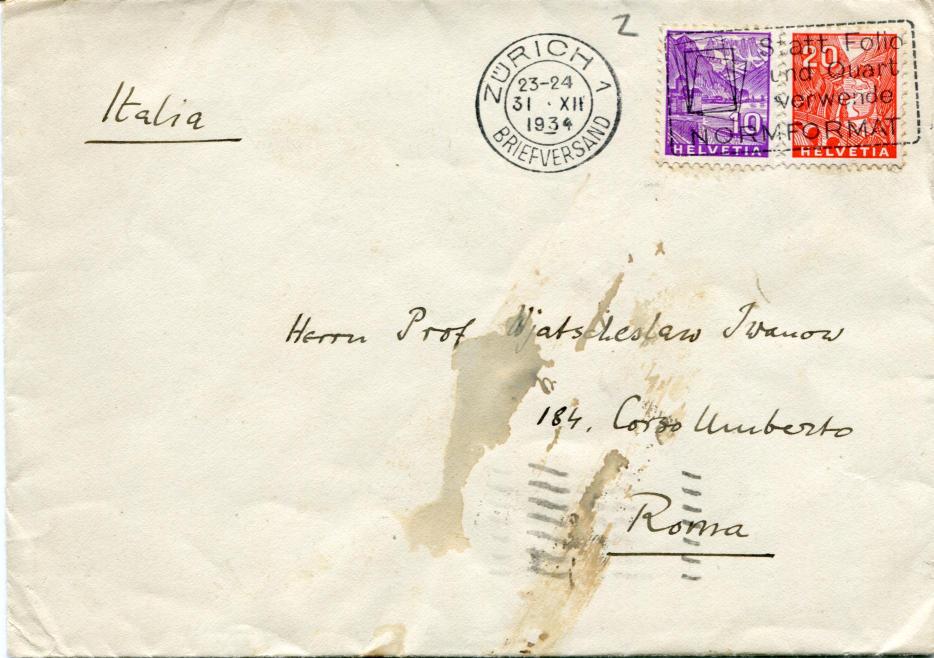 Z
ZÜRICH 1
23-24
31 · XII
1934
BRIEFVERSAND
Statt Folio
und Quart
verwende
NORMFORMAT
10
HELVETIA
20
HELVETIA
Italia
Herrn Prof Wjatscheslaw Iwanow
184. Corso Umberto
Roma